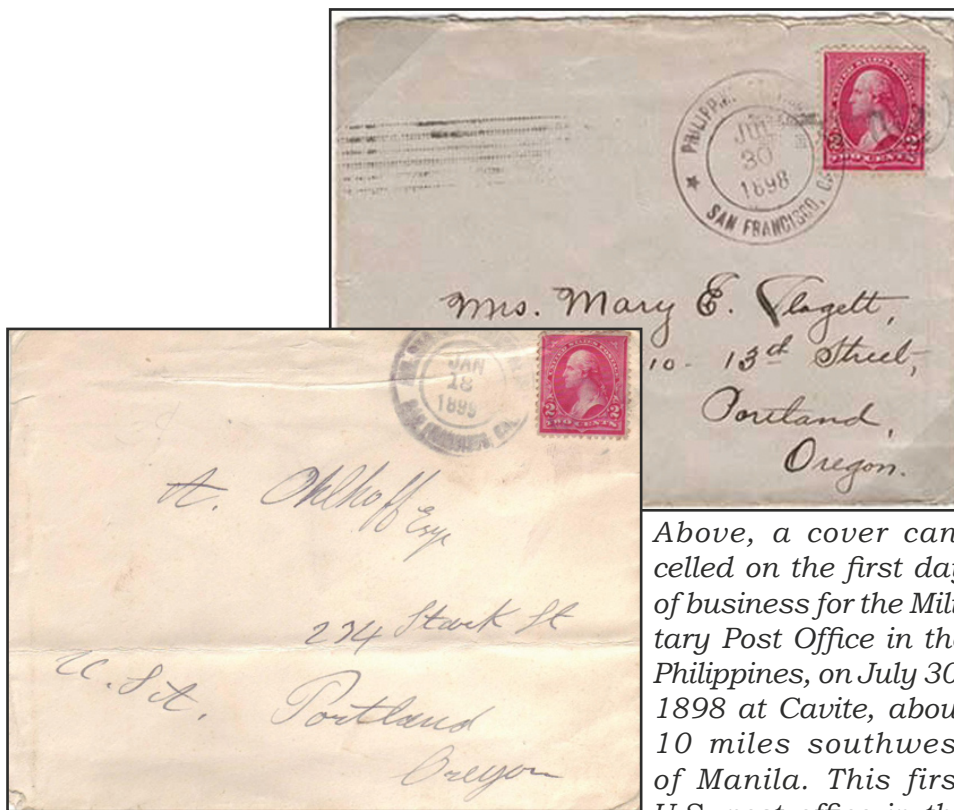 PHILIPP
JUL
30
1898
SAN FRANCISCO, CA
UNITED STATES POSTAGE
2 2
TWO CENTS
Mrs. Mary E.
10 - 13th Street,
Portland,
Oregon.
JAN
18
1899
2 2
TWO CENTS
A. Ohlhoff Esqr
234 Stark St
U.S.A. Portland
Oregon
Above, a cover can
celled on the first day
of business for the Mili
tary Post Office in the
Philippines, on July 30
1898 at Cavite, abou
10 miles southwes
of Manila. This firs